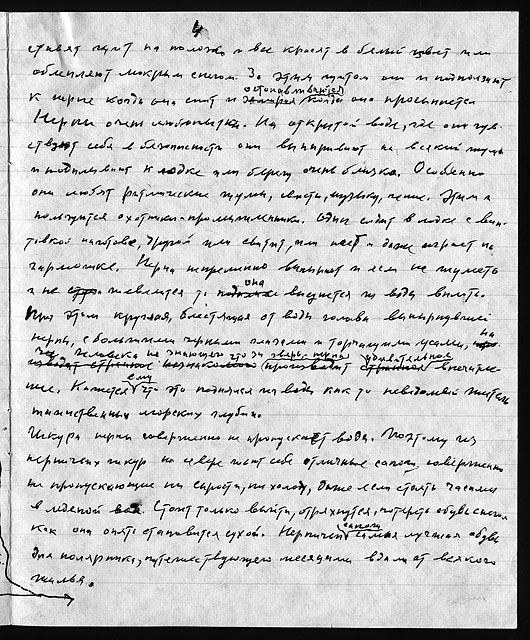 4
ставят щит на полозья и все красят в белый цвет или
облепляют мокрым снегом. За этим щитом они и подползают
к нерпе когда она спит и замирая когда она просыпается
останавливаются
Нерпы очень любопытны. На открытой воде, где они чув-
ствуют себя в безопасности они выныривают на всякий шум
и подплывают к лодке или берегу очень близко. Особенно
они любят ритмические шумы, свист, музыку, пение. Этим и
пользуются охотники-промышленники. Один сидит в лодке с вин-
товкой наготове, другой или свистит, или поет и даже играет на
гармошке. Нерпа непременно вынырнет и если не шуметь
и не шевелится то она высунется из воды вплоть.
При этом круглая, блестящая от воды голова вынырнувшей
нерпы, с большими черными глазами и торчащими усами, на
человека не знающего что за зверь нерпа производит удивительное впечатле-
ние. Кажется ему что это поднялся из воды как то неведомый житель
таинственных морских глубин.
Шкура нерпы совершенно не пропускает воды. Поэтому из
нерпичьих шкур на севере шьют себе отличные сапоги, совершенно
не пропускающие ни сырости, ни холоду, даже если стоять часами
в ледяной воде. Стоит только выйти, отряхнутся, потереть обувь снегом
как она опять становится сухой. Нерпичьи сапоги самая лучшая обувь
для полярника, путешествующего месяцами вдали от всякого
жилья.